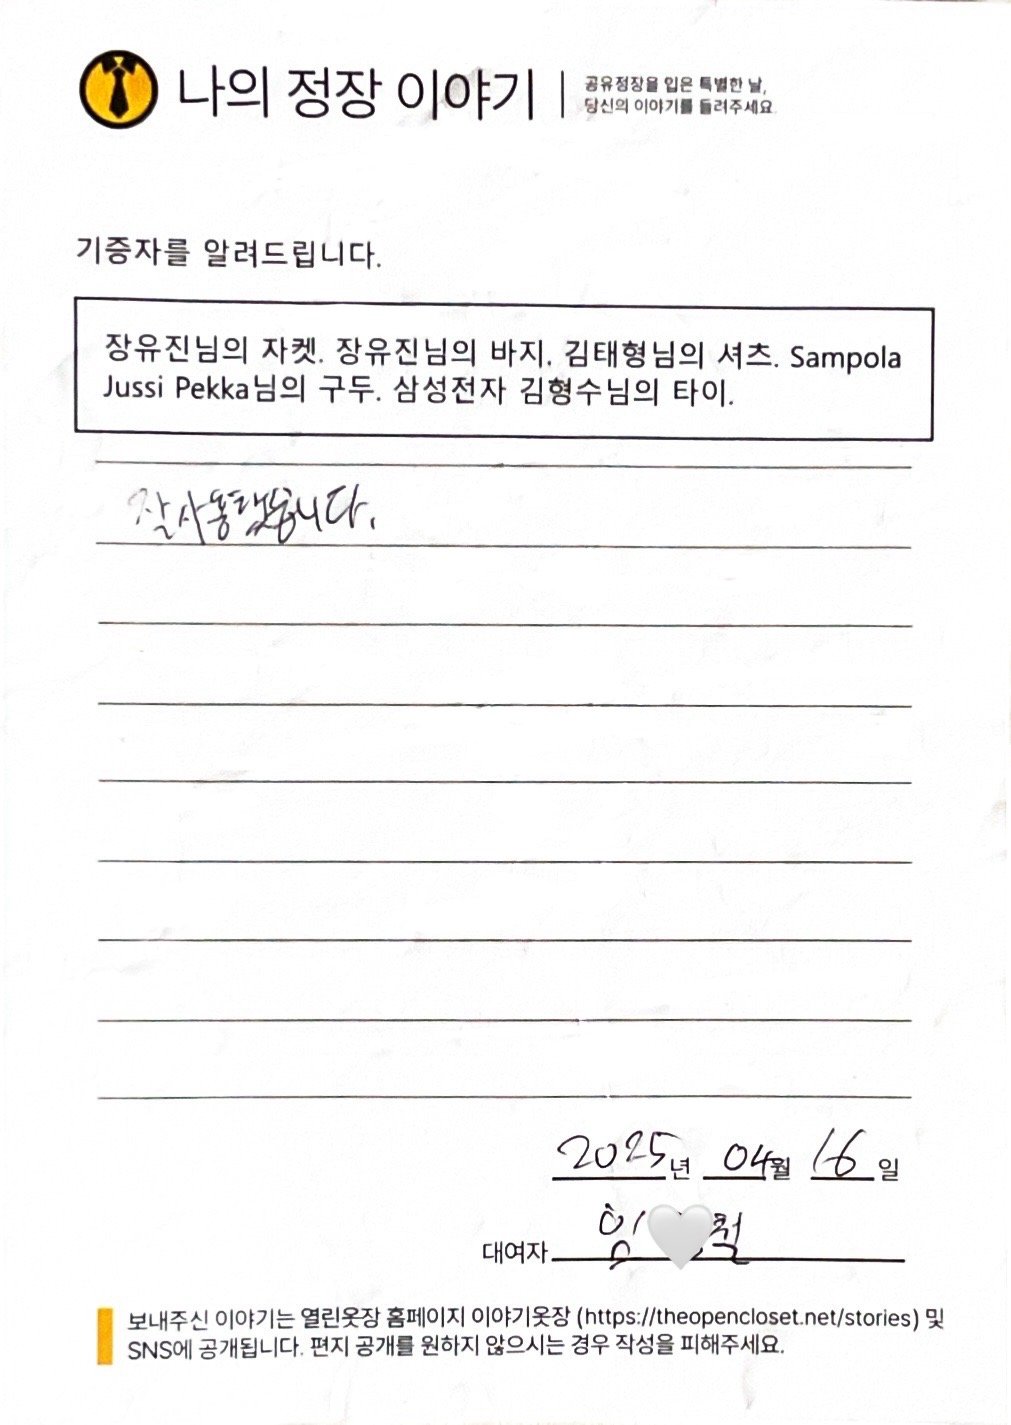 나의 정장 이야기
공유정장을 입은 특별한 날,
당신의 이야기를 들려주세요.
기증자를 알려드립니다.
장유진님의 자켓. 장유진님의 바지. 김태형님의 셔츠. Sampola
Jussi Pekka님의 구두. 삼성전자 김형수님의 타이.
잘 사용했습니다.
2025년 04월 16일
대여자 임
보내주신 이야기는 열린옷장 홈페이지 이야기옷장 (https://theopencloset.net/stories) 및
SNS에 공개됩니다. 편지 공개를 원하지 않으시는 경우 작성을 피해주세요.